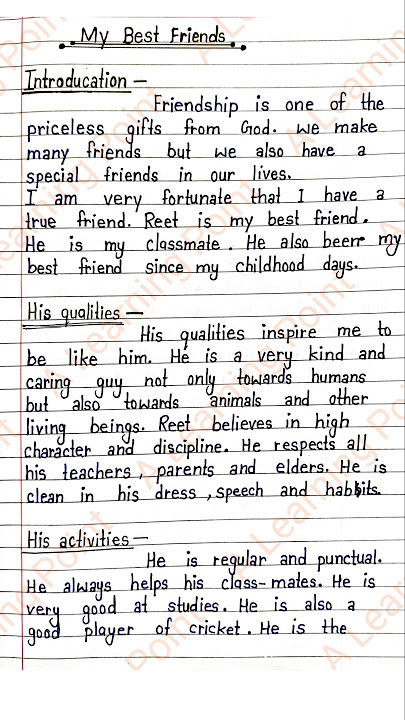 My Best Friends
Introducation –
Friendship is one of the
priceless gifts from God. we make
many friends but we also have a
special friends in our lives.
I am very fortunate that I have a
true friend. Reet is my best friend.
He is my classmate. He also been my
best friend since my childhood days.
His qualities –
His qualities inspire me to
be like him. He is a very kind and
caring guy not only towards humans
but also towards animals and other
living beings. Reet believes in high
character and discipline. He respects all
his teachers, parents and elders. He is
clean in his dress, speech and habbits.
His activities –
He is regular and punctual.
He always helps his class-mates. He is
very good at studies. He is also a
good player of cricket. He is the
A Learning Point